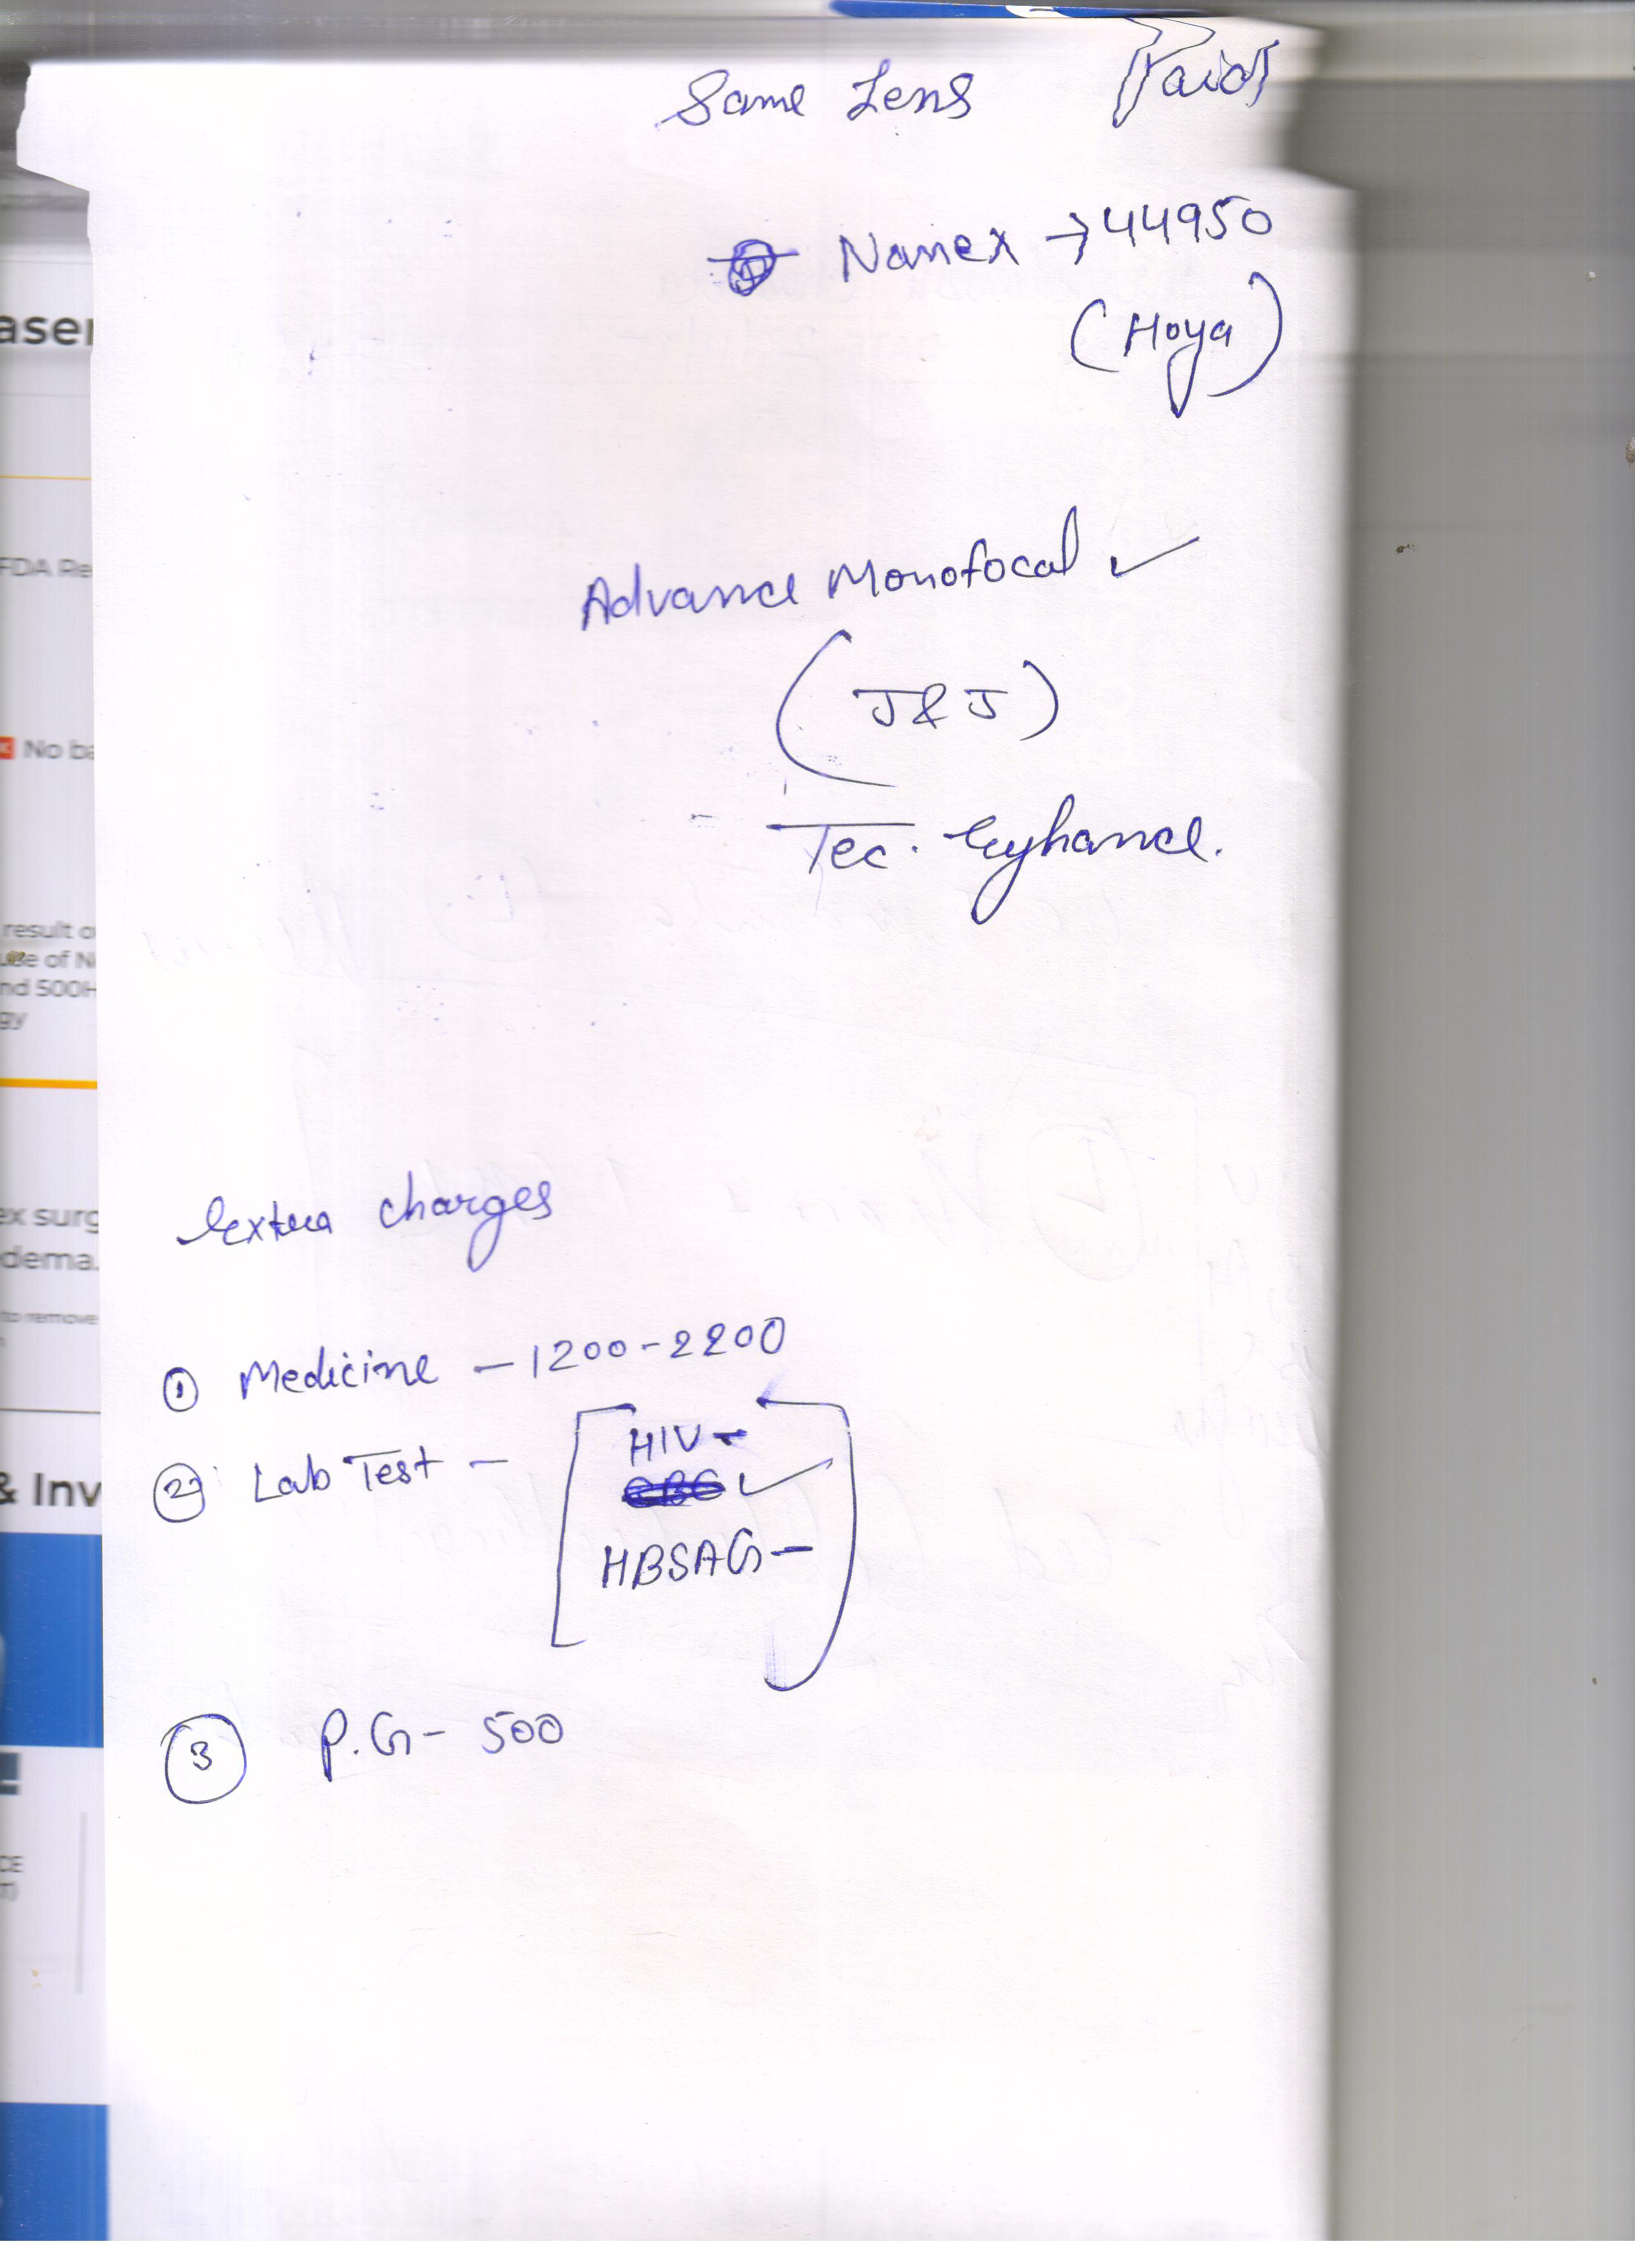 Same Lens Paid
Nanex → 44950
(Hoya)
Advance Monofocal ✓
(J&J)
Tec. Eyhance.
Extra charges
① Medicine - 1200-2200
② Lab Test - HIV -
CBC ✓
HBSAG -
③ P.G - 500
aser
FDA Re
No ba
result o
use of N
nd 500H
gy
ex surg
dema.
to remove
& Inv